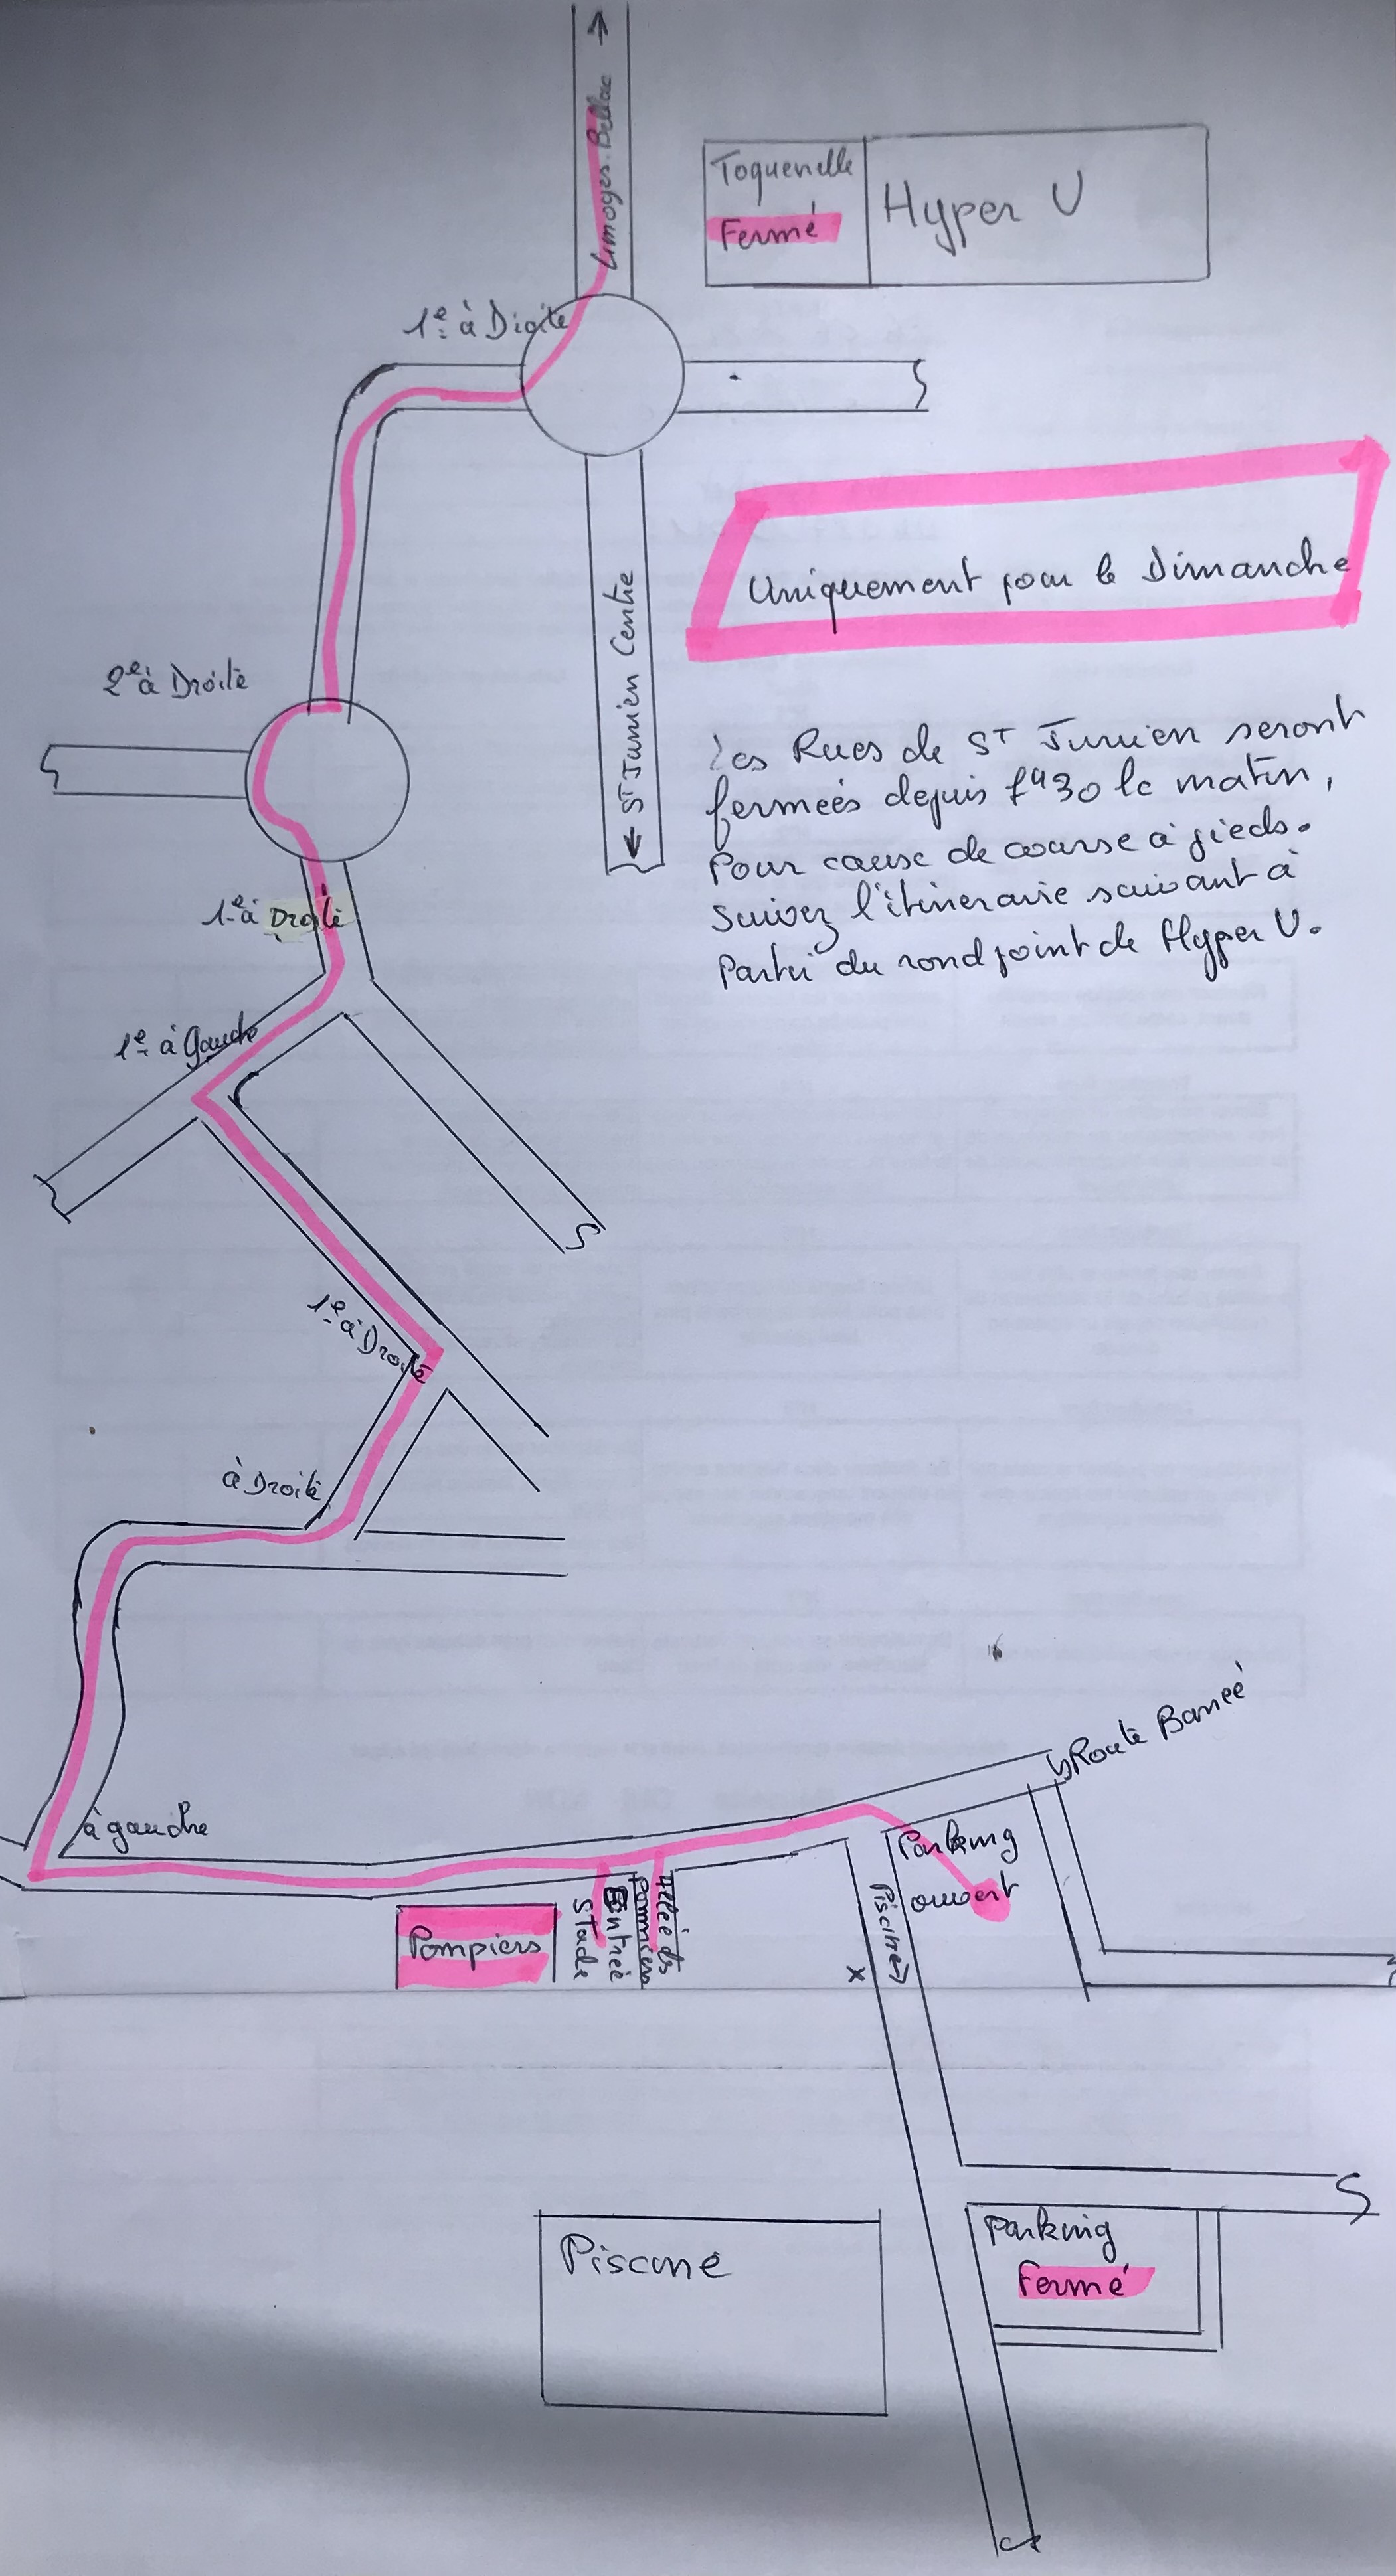 Limoges. Bellac
Toquenelle
Fermé
Hyper U
1e à Droite
Uniquement pour le Dimanche
St Junien Centre
2e à Droite
Les Rues de St Junien seront
fermées depuis 7h30 le matin,
Pour cause de course à pieds.
Suivez l'itineraire suivant à
Partir du rond point de Hyper U.
1e à Droite
1e à Gauche
1e à Droite
à Droite
Route Barreé
à gauche
Parking
ouvert
Pompiers
Stade
Entreé
Allée des
Pommiers
Piscine
Piscine
Parking
Fermé